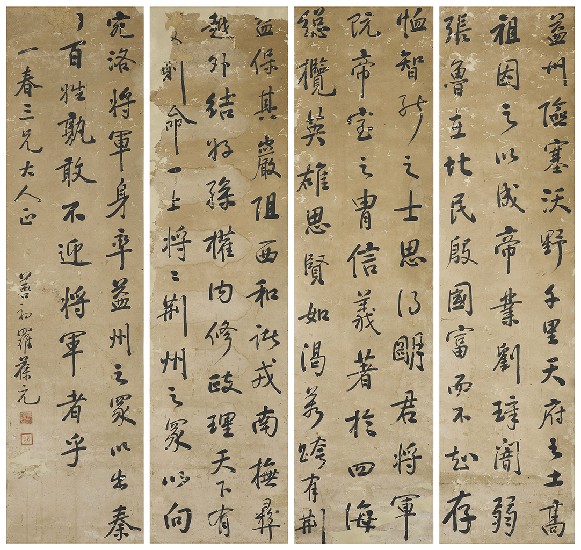 益州險塞沃野千里天府之土高
祖因之以成帝業劉璋闇弱
張魯在北民殷國富而不知存
恤智能之士思得明君將軍
既帝室之胄信義著於四海
總攬英雄思賢如渴若跨有荆
益保其巖阻西和諸戎南撫彝
越外結好孫權內修政理天下有
則命一上將〻荆州之眾以向
宛洛將軍身率益州之眾以出秦
百姓孰敢不迎將軍者乎
一春三兄大人正
初羅葆元